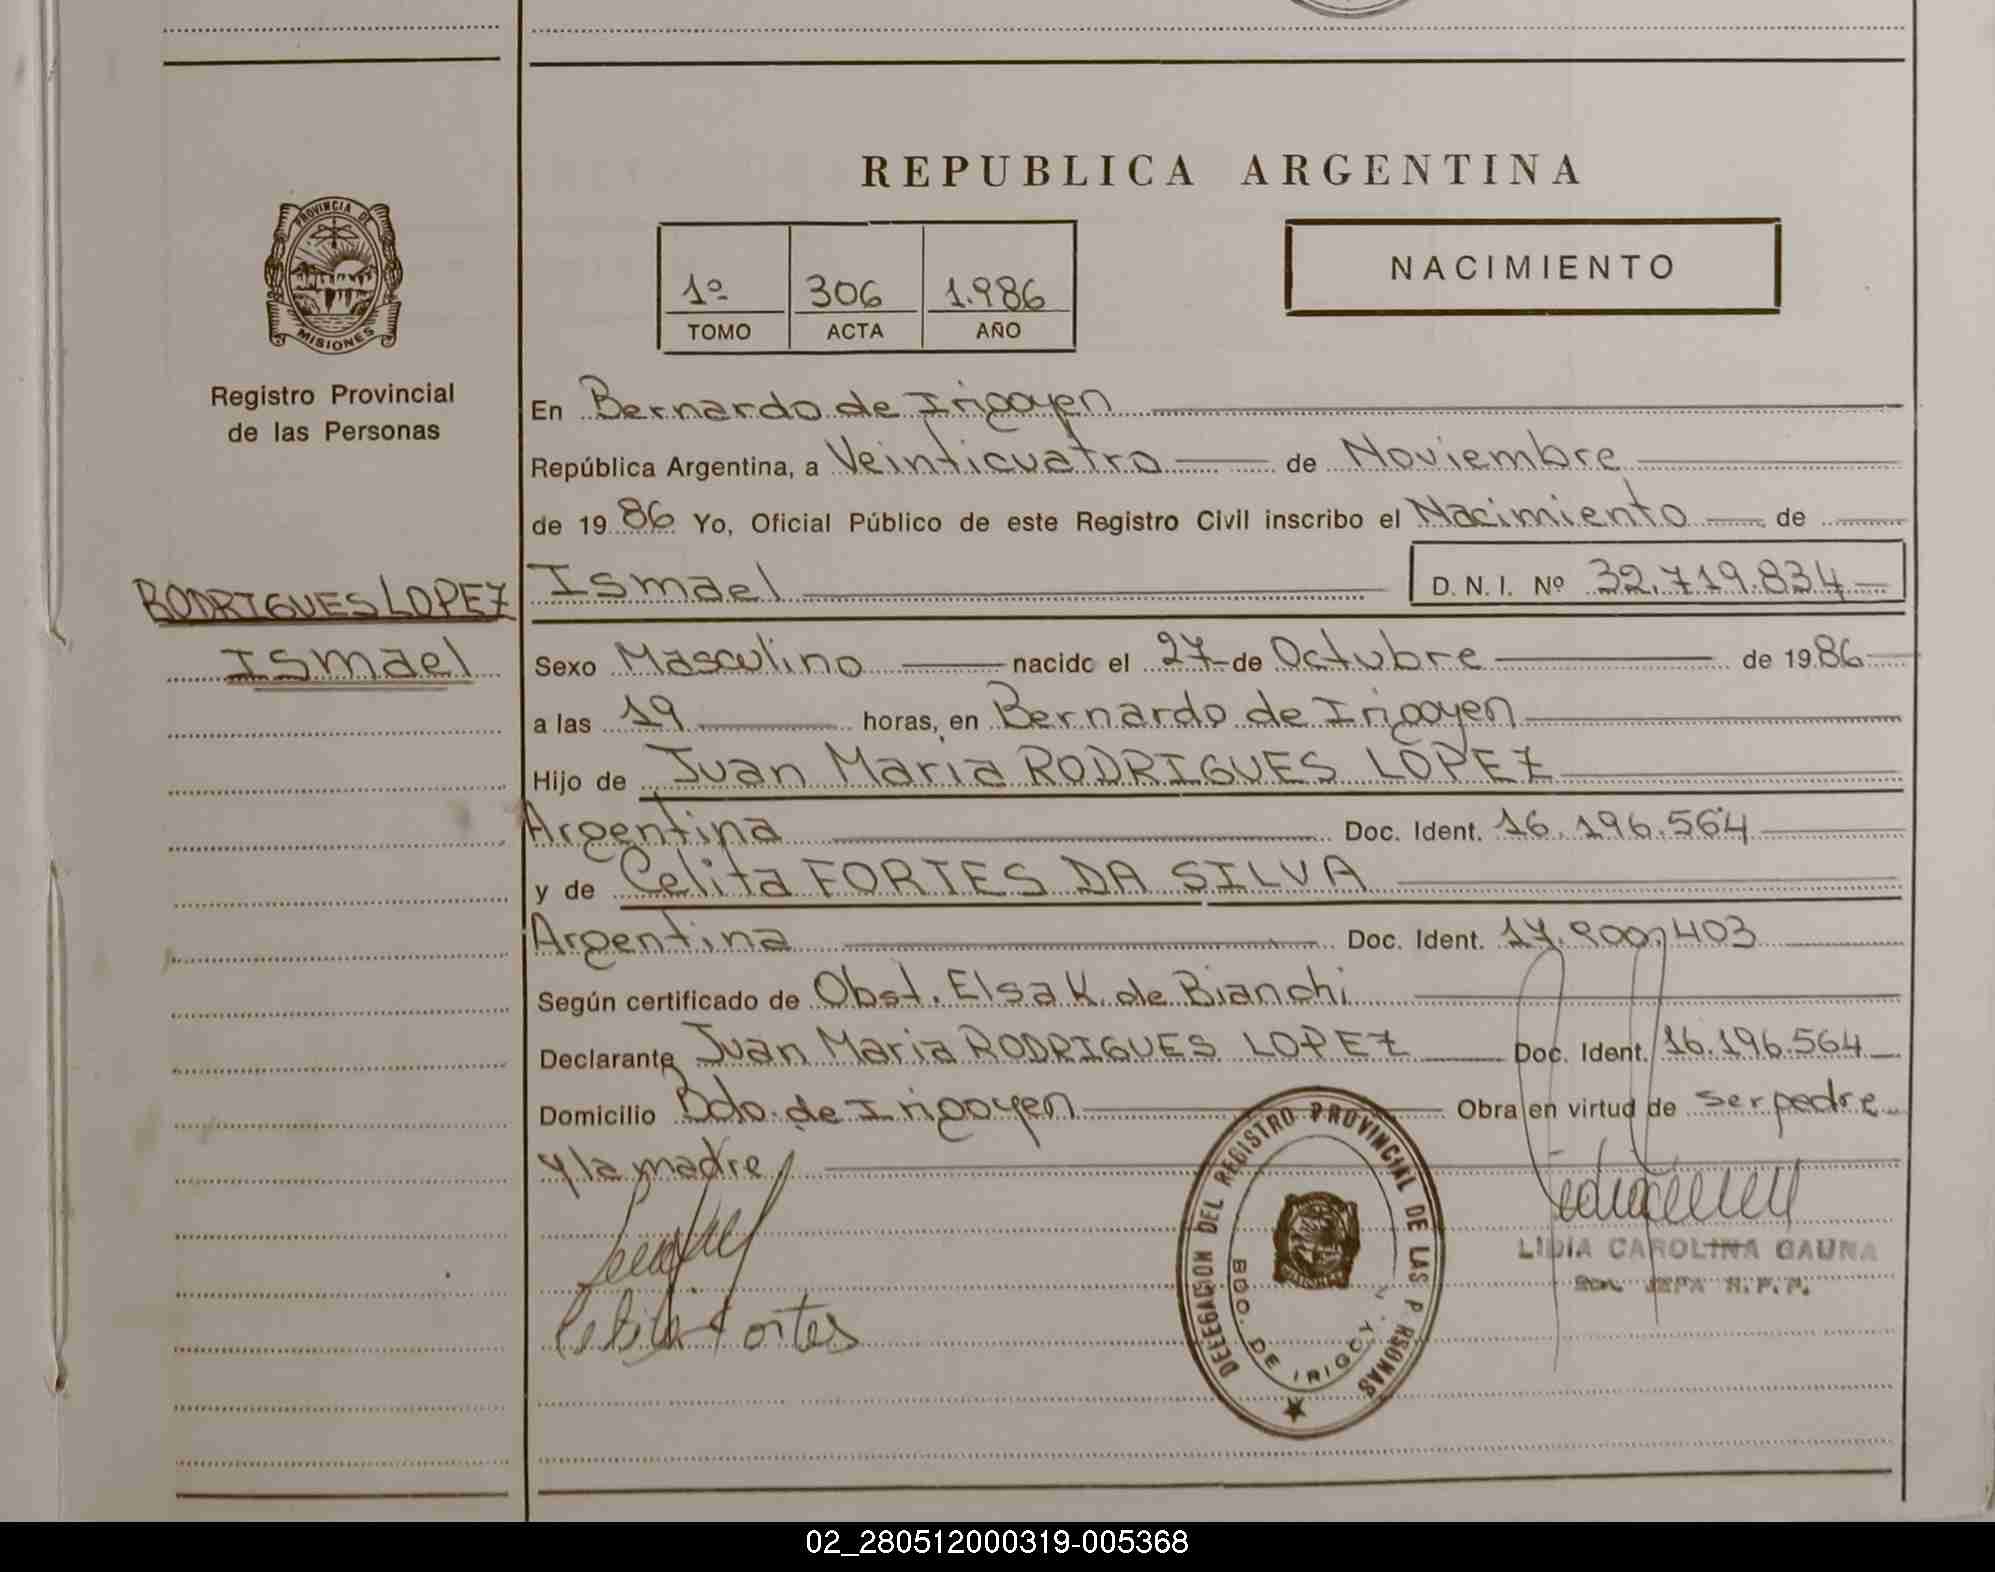 REPUBLICA ARGENTINA
PROVINCIA DE
MISIONES
Registro Provincial
de las Personas
1º 306 1.986
TOMO ACTA AÑO
NACIMIENTO
En Bernardo de Irigoyen
República Argentina, a Veinticuatro de Noviembre
de 1986 Yo, Oficial Público de este Registro Civil inscribo el Nacimiento de
RODRIGUES LOPEZ
Ismael
Ismael D. N. I. Nº 32.719.834
Sexo Masculino nacido el 27 de Octubre de 1986
a las 19 horas, en Bernardo de Irigoyen
Hijo de Juan Maria RODRIGUES LOPEZ
Argentina Doc. Ident. 16.196.564
y de Celita FORTES DA SILVA
Argentina Doc. Ident. 17.900.403
Según certificado de Obst. Elsa K. de Bianchi
Declarante Juan Maria RODRIGUES LOPEZ Doc. Ident. 16.196.564
Domicilio Bdo. de Irigoyen Obra en virtud de ser padre
y la madre
Fortes
DELEGACION DEL REGISTRO PROVINCIAL DE LAS P RSONAS
BDO. DE IRIGOY
LIDIA CAROLINA GAUNA
02_280512000319-005368